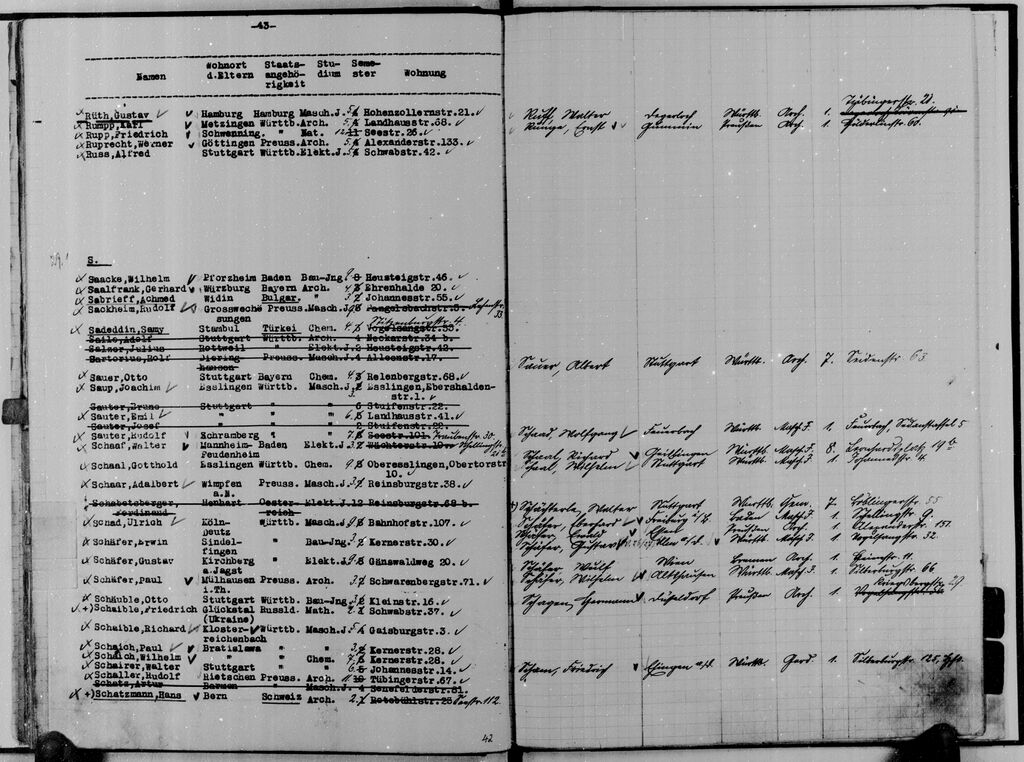 -43-
Namen Wohnort d.Eltern Staats-angehö-rigkeit Stu-dium Seme-ster Wohnung
Rüth,Gustav Hamburg Hamburg Masch.J. 5 Hohenzollernstr.21.
Rumpp,Karl Metzingen Württb. Arch. 5 Landhausstr.68.
Rupp,Friedrich Schwenning. " Nat. 12 Seestr.26.
Ruprecht,Werner Göttingen Preuss. Arch. 5 Alexanderstr.133.
Russ,Alfred Stuttgart Württb. Elekt.J. 5 Schwabstr.42.
S.
Saacke,Wilhelm Pforzheim Baden Bau-Jng. Heusteigstr.46.
Saalfrank,Gerhard Würzburg Bayern Arch. 4 Ehrenhalde 20.
Sabrieff,Achmed Widin Bulgar. " 3 Johannesstr.55.
Sackheim,Rudolf Grosswechsungen Preuss. Masch.J.
Sadeddin,Samy Stambul Türkei Chem. 4 Vogelsangstr.53.
Sailo,Adolf Stuttgart Württb. Arch. 4 Neckarstr.34 b.
Salzer,Julius Rottweil " Elekt.J. 2 Heusteigstr.42.
Sartorius,Rolf Diering-hausen Preuss. Masch.J. 4 Alleenstr.17.
Sauer,Otto Stuttgart Bayern Chem. 4 Relenbergstr.68.
Saup,Joachim Esslingen Württb. Masch.J. 3 Esslingen,Ebershalden-
str.1.
Sauter,Bruno Stuttgart " " 6 Stuifenstr.22.
Sauter,Emil " " " 6 Landhausstr.41.
Sauter,Josef " " " 2 Stuifenstr.22.
Sauter,Rudolf Schramberg " " 7 Seestr.101. Traubenstr.30
Schaaf,Walter Mannheim- Baden Elekt.J. 3
Feudenheim
Schaal,Gotthold Esslingen Württb. Chem. 9 Oberesslingen,Obertorstr
10.
Schaar,Adalbert Wimpfen Preuss. Masch.J. 3 Reinsburgstr.38.
a.N.
Schabetsberger, Henhart Oester- Elekt.J.12 Reinsburgstr.68 b.
Ferdinand reich
Schad,Ulrich Köln- Württb. Masch.J. 9 Bahnhofstr.107.
Deutz
Schäfer,Erwin Sindel- " Bau-Jng. 3 Kernerstr.30.
fingen
Schäfer,Gustav Kirchberg " Elekt.J. 9 Gänswaldweg 20.
a.Jagst
Schäfer,Paul Mülhausen Preuss. Arch. 3 Schwarenbergstr.71.
i.Th.
Schäuble,Otto Stuttgart Württb. Bau-Jng. 3 Kleinstr.16.
+)Schaible,Friedrich Glückstal Russld. Math. 2 Schwabstr.37.
(Ukraine)
Schaible,Richard Kloster- Württb. Masch.J. 5 Gaisburgstr.3.
reichenbach
Schaich,Paul Bratislawa " " 3 Kernerstr.28.
Schaich,Wilhelm " " Chem. 7 Kernerstr.28.
Schairer,Walter Stuttgart " " 6 Johannesstr.14.
Schaller,Rudolf Rietschen Preuss. Arch. 11 Tübingerstr.67.
Schatz,Artur Barmen " Masch.J. 4 Senefelderstr.51.
+)Schatzmann,Hans Bern Schweiz Arch. 2 Rotebühlstr.23 Seestr.112.
42
Ruff, Walter Degerloch Württb. Arch. 1. Tübingerstr. 21.
Runge, Ernst Preußen Arch. 1.
Sauer, Albert Stuttgart Württb. Arch. 7. Seidenstr 63
Schaad, Wolfgang Feuerbach Württb. Masch.J. 1.
Schaal, Richard Geislingen Württb. Masch.J. 8. Leonhardsplatz 19b
Schaal, Wilhelm Stuttgart Württb. Masch.J. 1 Johannesstr. 4.
Schächterle, Walter Stuttgart Württb. Chem. 7 Böblingerstr. 55
Schäfer, Eberhard Freiburg i/B. Baden Masch.J. 1
Preußen Arch. 1 Alexanderstr. 151.
Schäfer, Gustav Ulm a/d. Württb. Masch.J. 1. Vogelsangstr. 52.
Schäfer, Wulf Bremen Arch. 1
Schäfer, Wilhelm Altshausen Württb. Masch.J. 1. Silberburgstr 66
Schagen, Hermann Düsseldorf Preußen Arch. 1
Scham, Friedrich Ehingen a/d. Württb. 1. Silberburgstr. 125,